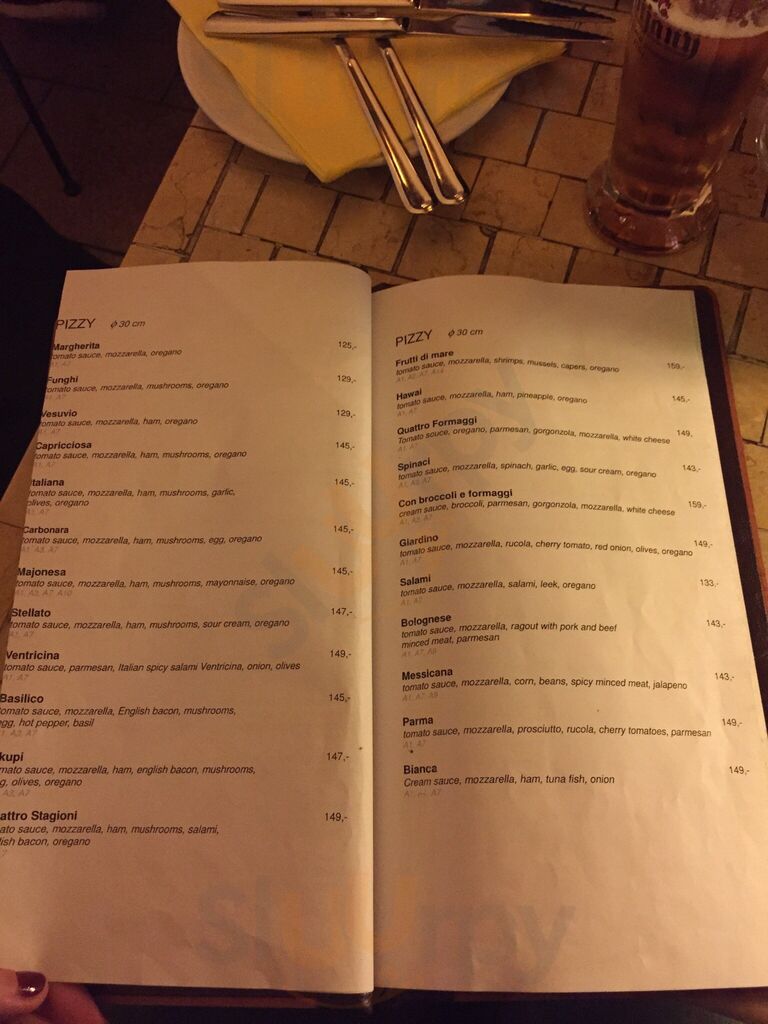 PIZZY ϕ 30 cm
Margherita 125,-
tomato sauce, mozzarella, oregano
A1, A7
Funghi 129,-
tomato sauce, mozzarella, mushrooms, oregano
A1, A7
Vesuvio 129,-
tomato sauce, mozzarella, ham, oregano
A1, A7
Capricciosa 145,-
tomato sauce, mozzarella, ham, mushrooms, oregano
A1, A7
Italiana 145,-
tomato sauce, mozzarella, ham, mushrooms, garlic,
olives, oregano
A1, A7
Carbonara 145,-
tomato sauce, mozzarella, ham, mushrooms, egg, oregano
A1, A3, A7
Majonesa 145,-
tomato sauce, mozzarella, ham, mushrooms, mayonnaise, oregano
A1, A3, A7, A10
Stellato 147,-
tomato sauce, mozzarella, ham, mushrooms, sour cream, oregano
A1, A7
Ventricina 149,-
tomato sauce, parmesan, Italian spicy salami Ventricina, onion, olives
A1, A7
Basilico 145,-
omato sauce, mozzarella, English bacon, mushrooms,
egg, hot pepper, basil
A1, A3, A7
kupi 147,-
mato sauce, mozzarella, ham, english bacon, mushrooms,
g, olives, oregano
A3, A7
attro Stagioni 149,-
ato sauce, mozzarella, ham, mushrooms, salami,
lish bacon, oregano
7
PIZZY ϕ 30 cm
Frutti di mare 159,-
tomato sauce, mozzarella, shrimps, mussels, capers, oregano
Hawai 145,-
tomato sauce, mozzarella, ham, pineapple, oregano
A1, A7
Quattro Formaggi 149,
Tomato souce, oregano, parmesan, gorgonzola, mozzarella, white cheese
A1, A7
Spinaci 143,-
tomato sauce, mozzarella, spinach, garlic, egg, sour cream, oregano
A1, A3, A7
Con broccoli e formaggi 159,-
cream sauce, broccoli, parmesan, gorgonzola, mozzarella, white cheese
A1, A3, A7
Giardino 149,-
tomato sauce, mozzarella, rucola, cherry tomato, red onion, olives, oregano
A1, A7
Salami 133,-
tomato sauce, mozzarella, salami, leek, oregano
A1, A7
Bolognese 143,-
tomato sauce, mozzarella, ragout with pork and beef
minced meat, parmesan
A1, A7, A9
Messicana 143,-
tomato sauce, mozzarella, corn, beans, spicy minced meat, jalapeno
A1, A7, A9
Parma 149,-
tomato sauce, mozzarella, prosciutto, rucola, cherry tomatoes, parmesan
A1, A7
Bianca 149,-
Cream sauce, mozzarella, ham, tuna fish, onion
A7
sluurpy
sluurpy